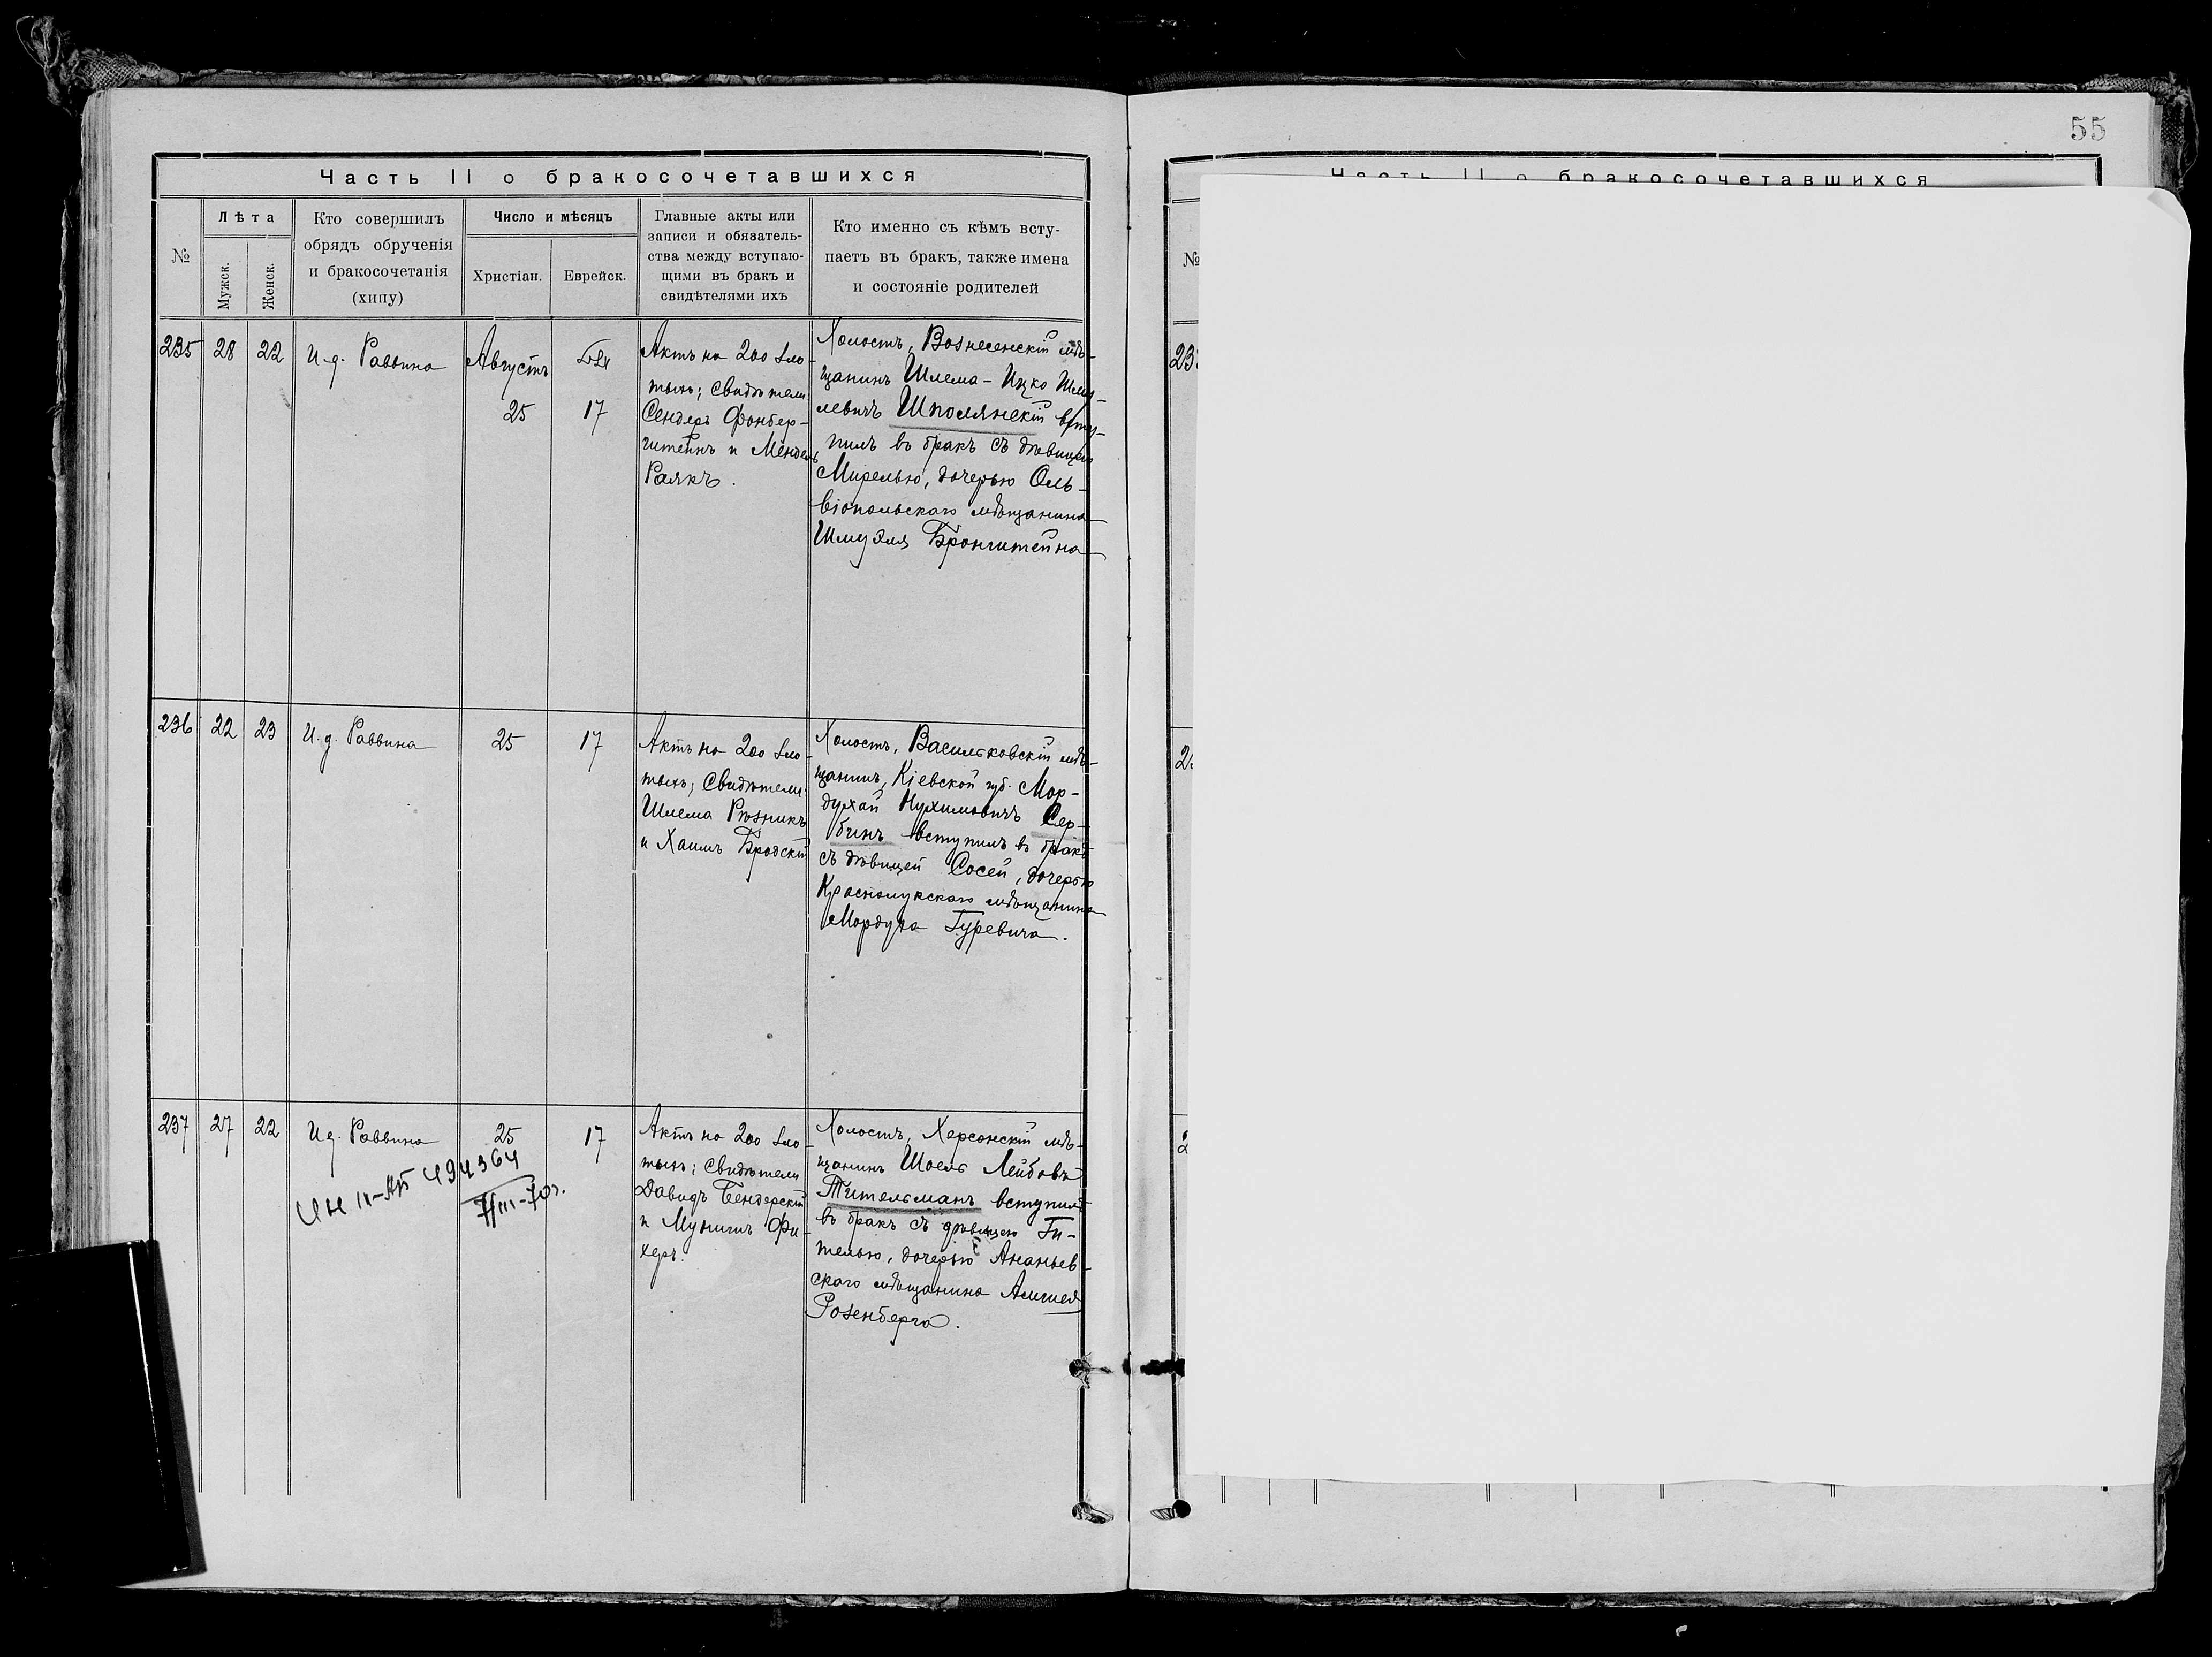 55
Часть II о бракосочетавшихся
№
Лѣта
Мужск.
Женск.
Кто совершилъ
обрядъ обрученія
и бракосочетанія
(хипу)
Число и мѣсяцъ
Христіан.
Еврейск.
Главные акты или
записи и обязатель-
ства между вступаю-
щими въ бракъ и
свидѣтелями ихъ
Кто именно съ кѣмъ всту-
паетъ въ бракъ, также имена
и состояніе родителей
235
28
22
И.д. Раввина
Августъ
25
17
Актъ на 200 зло-
тыхъ; Свидѣтели
Сендеръ Фонбер-
штейнъ и Мендель
Раякъ.
Холостъ, Вознесенскій мѣ-
щанинъ Шлема-Ицко Шму-
левичъ Шполянскій всту-
пилъ въ бракъ съ дѣвицею
Мирелью, дочерью Оль-
віопольскаго мѣщанина
Шмуэля Бронштейна
236
22
23
И.д. Раввина
25
17
Актъ на 200 зло-
тыхъ; Свидѣтели:
Шлема Рѣзникъ
и Хаимъ Бродскій
Холостъ, Васильковскій мѣ-
щанинъ, Кіевской губ. Мор-
духай Нухимовичъ Сер-
бинъ вступилъ въ бракъ
съ дѣвицей Сосей, дочерью
Краснолукскаго мѣщанина
Мордуха Гуревича.
237
27
22
И.д. Раввина
25
17
Актъ на 200 зло-
тыхъ; Свидѣтели
Давидъ Бендерскій
и Мунишъ Фи-
херъ.
Холостъ, Херсонскій мѣ-
щанинъ Шоель Лейбовъ
Тительманъ вступилъ
въ бракъ съ дѣвицею Ги-
телью, дочерью Ананьев-
скаго мѣщанина Алтея
Розенберга.
494364
7/III-70г.
Часть II о бракосочетавшихся
№